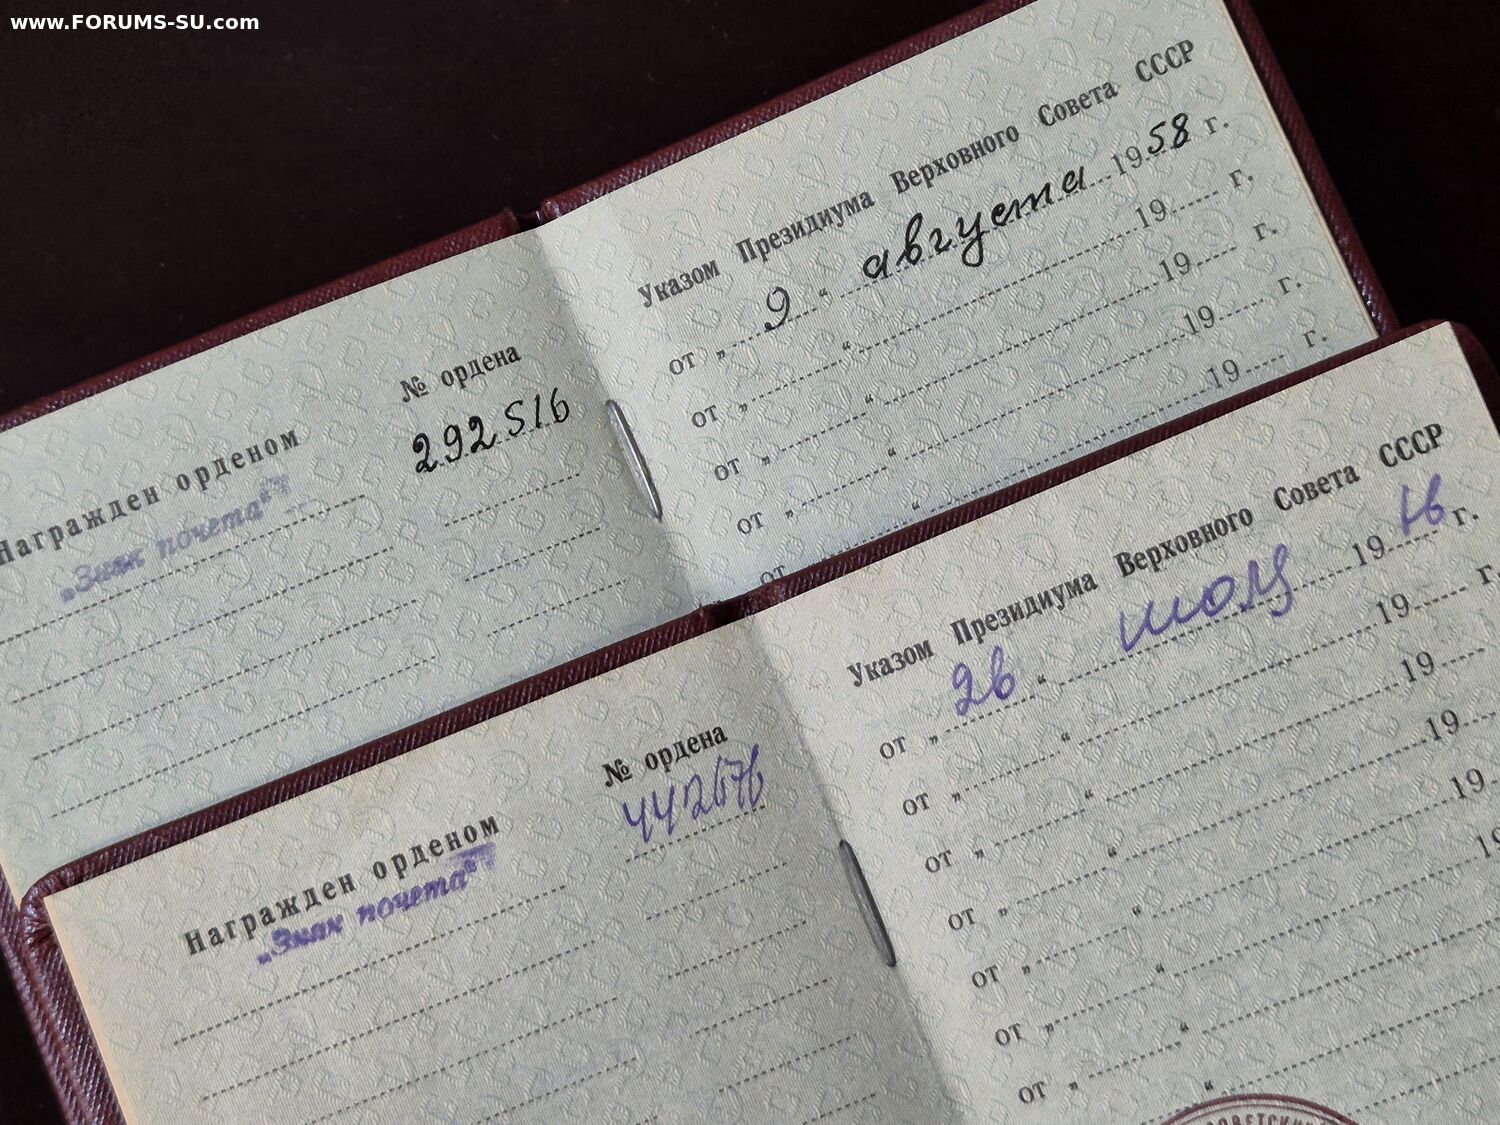 www.FORUMS-SU.com
Награжден орденом
„Знак почета“
№ ордена
292516
Указом Президиума Верховного Совета СССР
от „ 9 “ августа 1958 г.
от „ “ 19 г.
от „ “ 19 г.
от „ “ 19 г.
от 19 г.
Награжден орденом
„Знак почета“
№ ордена
442676
Указом Президиума Верховного Совета СССР
от „ “ 19 г.
от „ “ 19 г.
от „ “ 19
от „ “ 19
от „ “ 19
от „ “ 19
от „ “